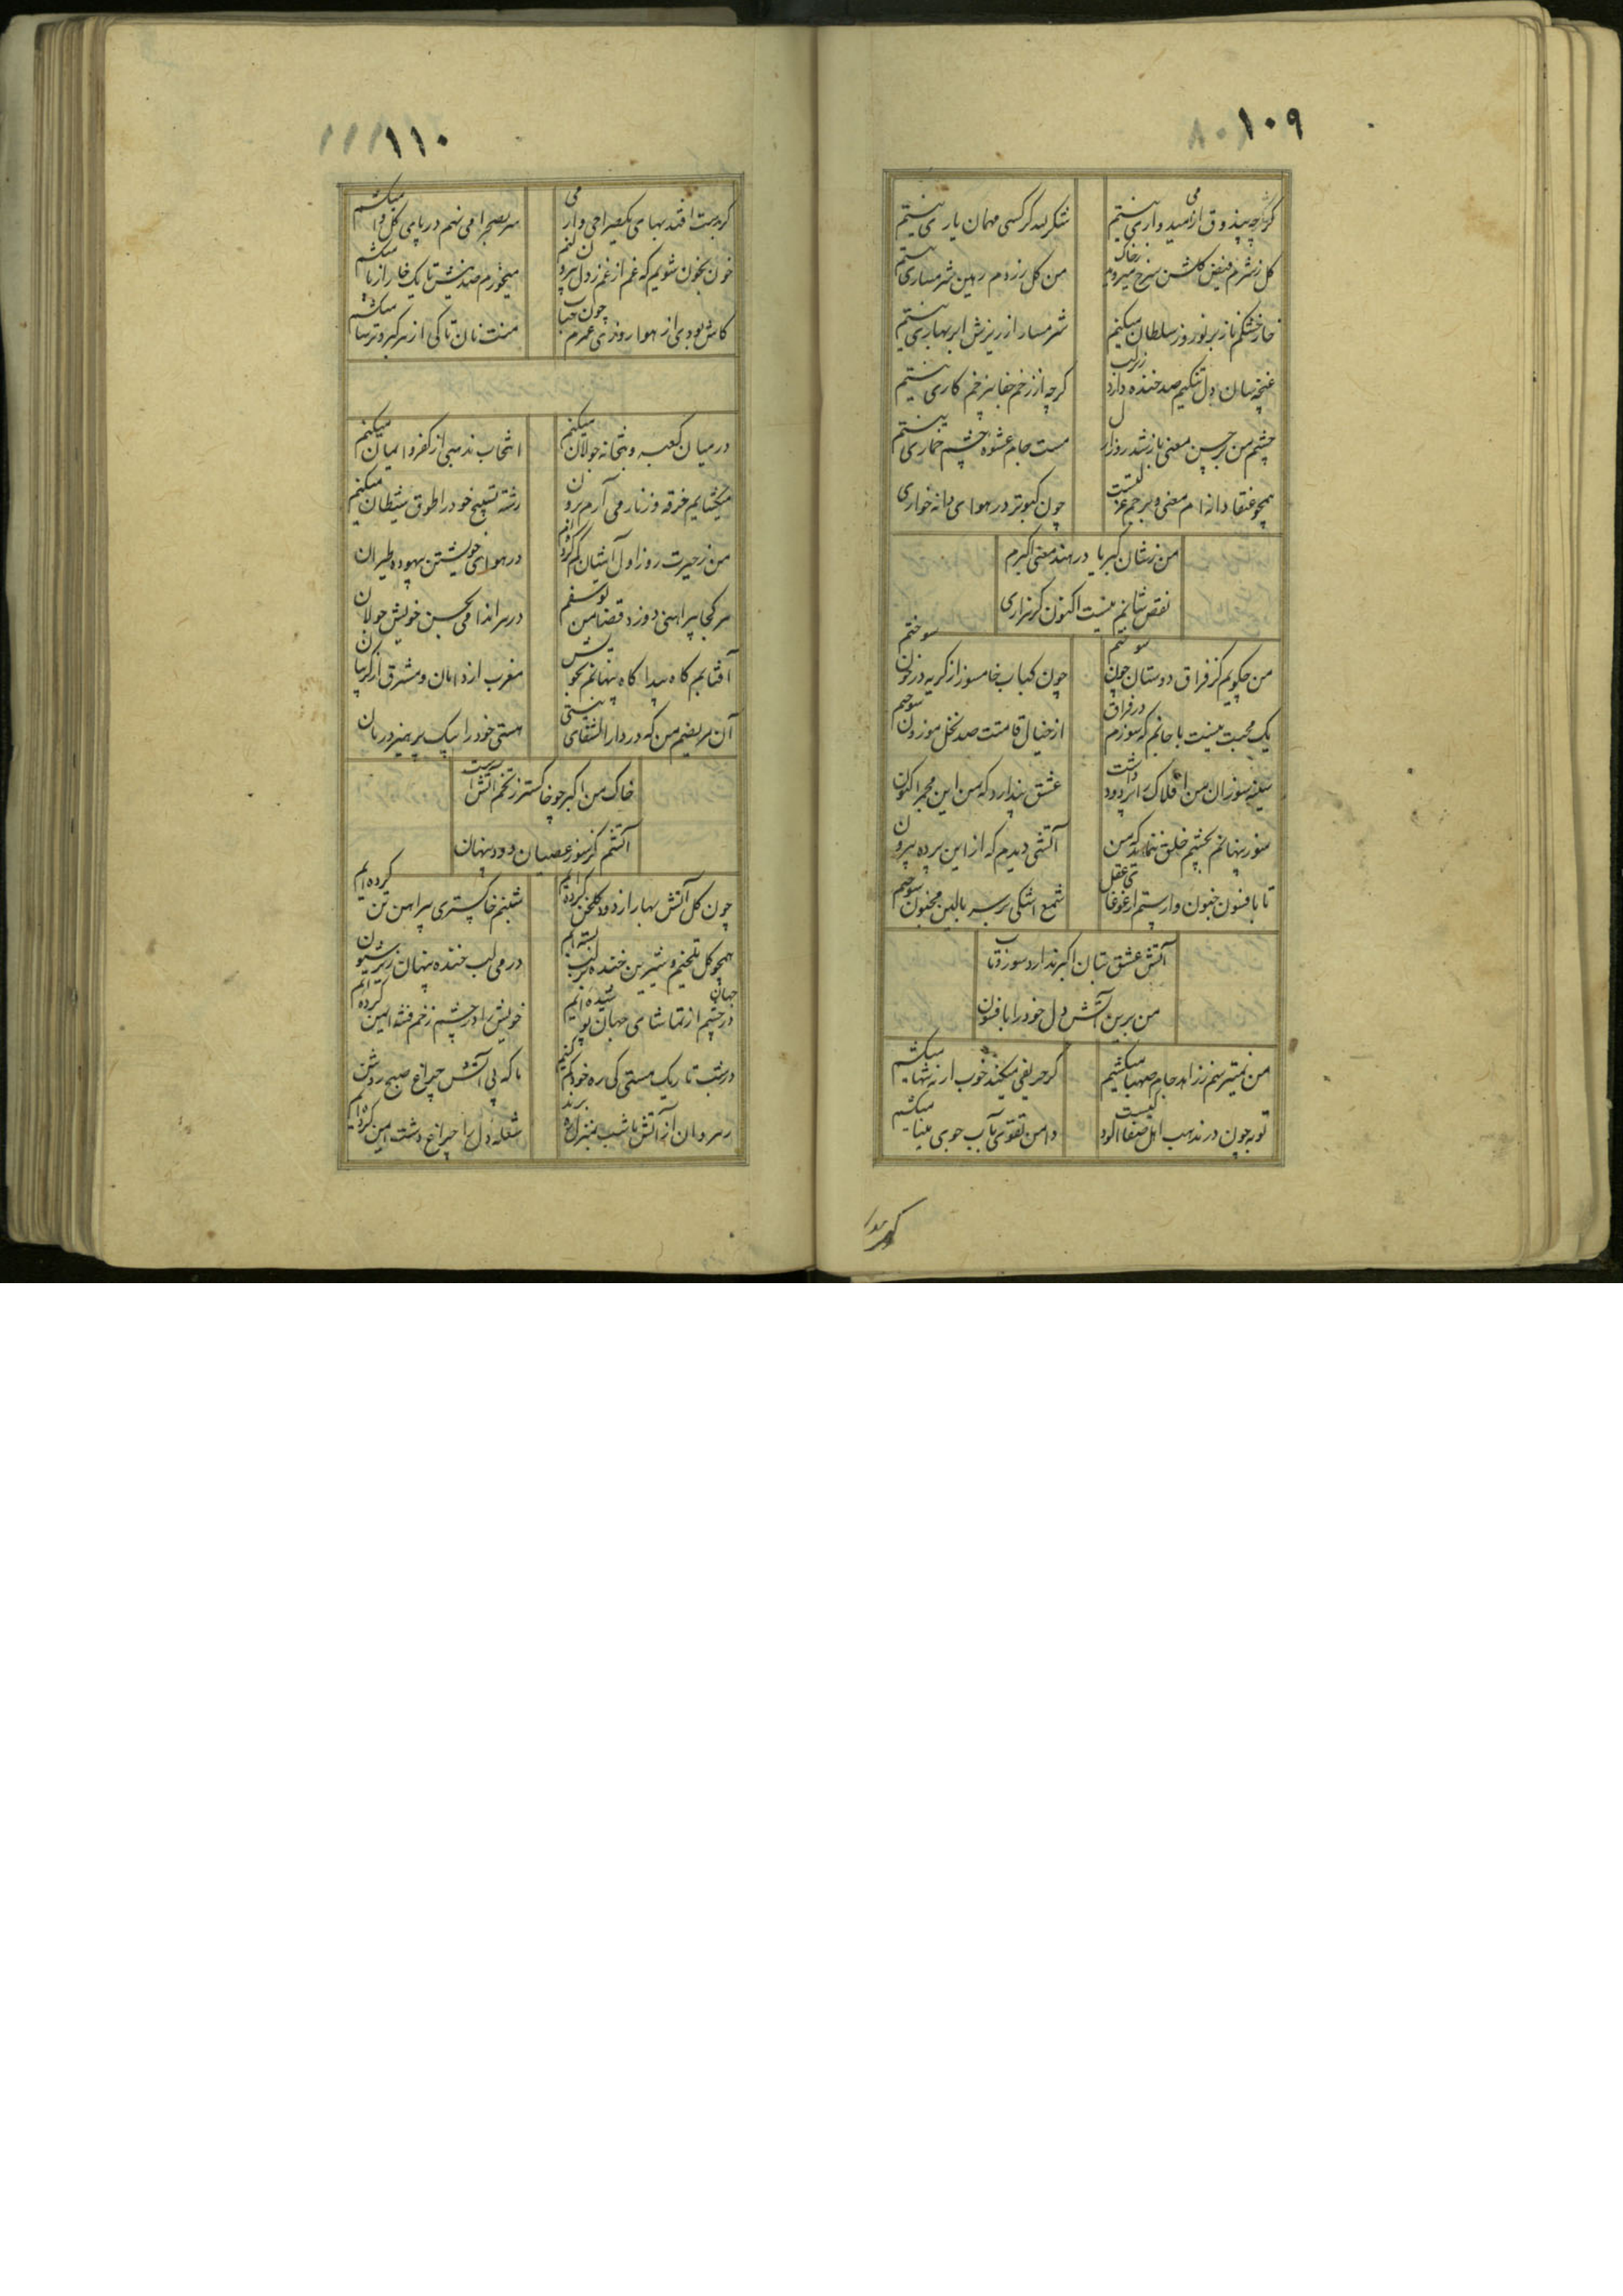 ۱۰۹
گرچه بیذوق از امیدواری نیستم
شکر لله گر کسی مهمان یاری نیستم
گل ز شرم فیض گلشن سرخ میروید ز خاک
من گل زردم رهین شرمساری نیستم
خار خشکم ناز بر نوروز سلطان میکنم
شرمسار از ریزش ابر بهاری نیستم
غنچه سان دل تنگیم صد خنده دارد زیر لب
گرچه از زخم جفا بیزخم کاری نیستم
چشم من بر حسن معنی باز شد روز ازل
مست جام عشوه چشم خماری نیستم
همچو عنقا دانه ام معنی و برجم عزلتست
چون کبوتر در هوای دانه خواری
من ز شان کبریا در هند معنی اکبرم
نقص شانم نیست اکنون گر نزاری
من چگویم کز فراق دوستان چون سوختم
چون کباب خامسوز از گریه در خون سوختم
یک محبت نیست با جانم که سوزم در فراق
از خیال قامتت صد نخل موزون سوختم
سینه سوزان من افلاک را پر دود داشت
عشق پندارد که من این مجمر اکنون
سوز پنهانم بچشم خلق ننماید که من
آتشی دیدم که از این پرده بیرون
تا بافسون جنون وارستم از غوغای عقل
شمع اشکی بر سر بالین مجنون سوختم
آتش عشق بتان اکبر ندارد سوز و تاب
من برین آتش دل خود را بافسون
من نمیترسم ز زاهد جام صهبا میکشم
گر حریفی میکند خوب ار نه تنها میکشم
توبه چون در مذهب اهل صفا آلودگیست
دامن تقوی بآب جوی مینا میکشم
۱۱۰
گر بدست افتد بهای یکصراحی وار می
سر بصحرا می نهم در پای گل وا میکشم
خون بخون شویم که غم از غم ز دل بیرون کنم
میخورم صد نیش تا یک خار از پا میکشم
کاش بودی از هوا روزی عمرم چون حباب
منت نان تا کی از گبر و ترسا میکشم
در میان کعبه و بتخانه جولان میکنم
انتخاب مذهبی از کفر و ایمان میکنم
میکشایم خرقه و زنار می آرم برون
رشته تسبیح خود را طوق شیطان میکنم
من ز حیرت روز اول آشیان گم کرده ام
در هوای خویشتن بیهوده طیران
هر کجا پیراهنی دوزد قضا من یوسفم
در سراندامی بحسن خویش جولان
آفتابم گاه پیدا گاه پنهانم بخویش
مغرب از دامان و مشرق از گریبان
آن مریضم من که در دار الشفای نیستی
هستی خود را بیک پرهیز درمان
خاک من اکبر چو خاکستر ز تخم آتشست
آتشم کز سوز عصیان دود پنهان
چون گل آتش بهار از دود گلخن کرده ایم
شبنم خاکستری پیراهن تن کرده ایم
همچو گل تلخیم و شیرین خنده بر لب بسته ایم
در می لب خنده پنهان زیر شیون
در چشم از تماشای جهان پوشیده ایم
خویش را در چشم زخم فتنه ایمن کرده ایم
در شب تاریک مستی کی ره خود گم کنیم
ما که پی آتش چراغ صبح روشن
رهروان از آتش ما شب بمنزل ره برند
شعله دل را چراغ دشت ایمن کرده ایم